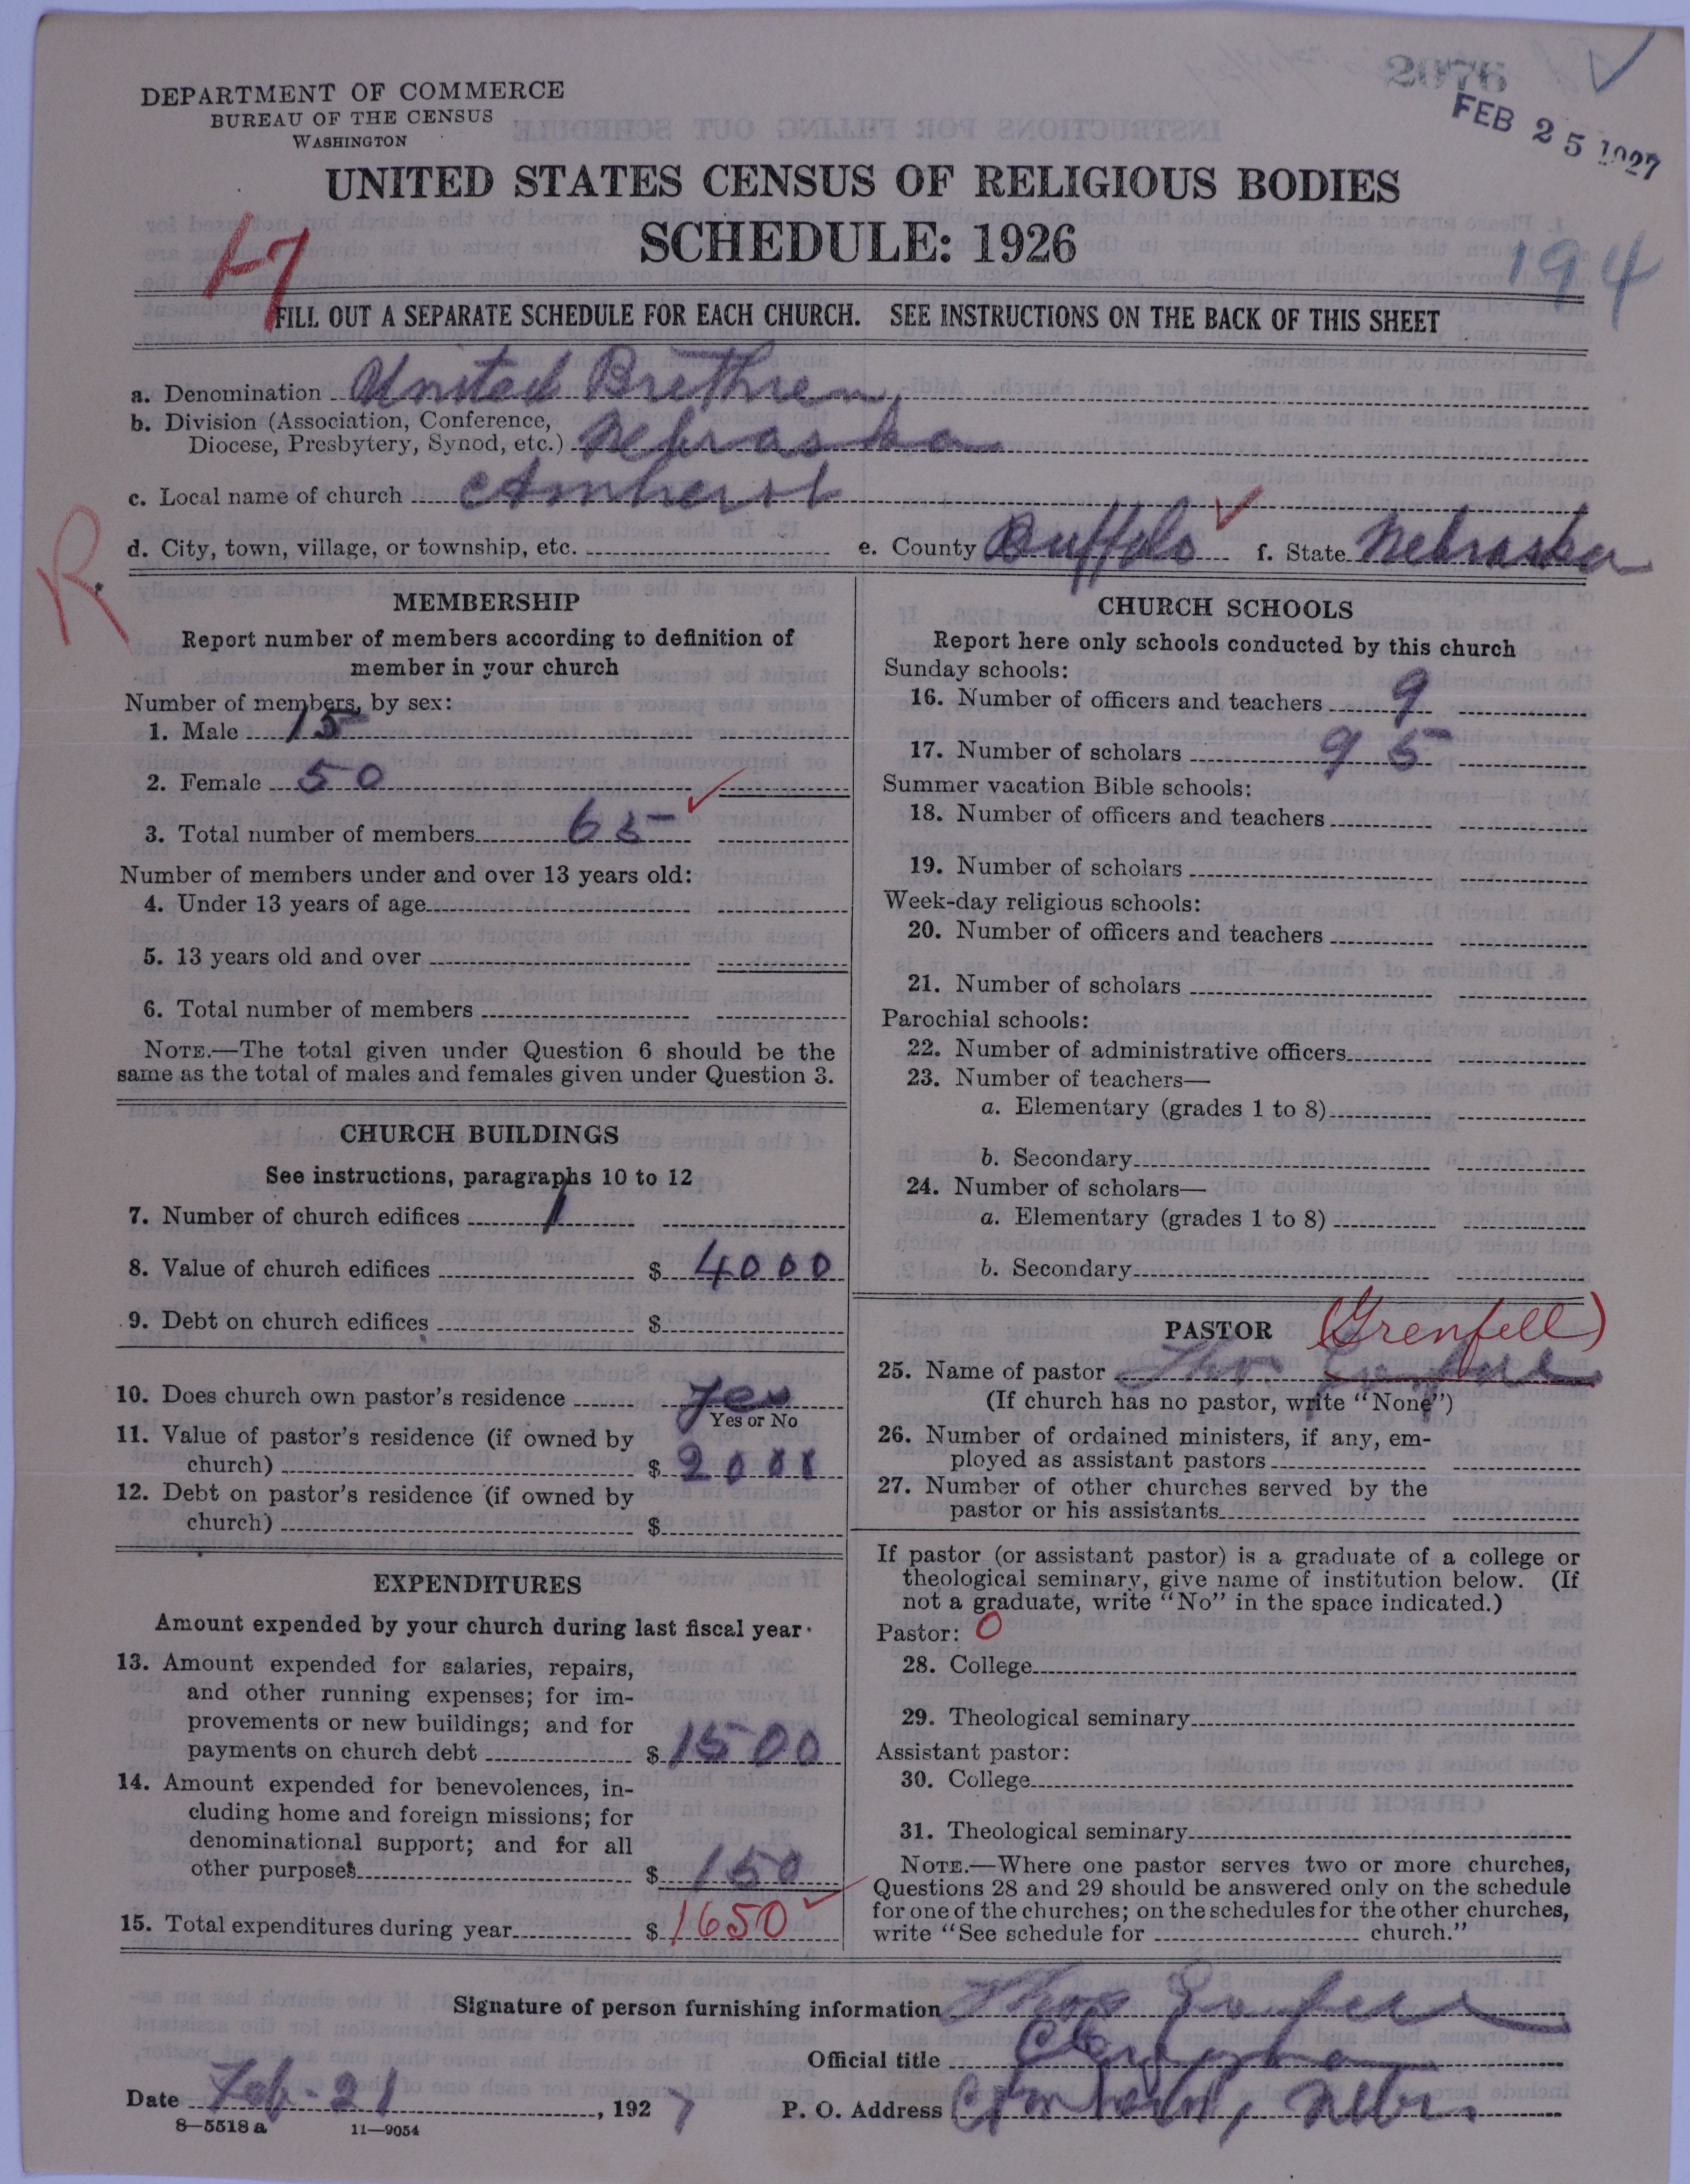 2076
FEB 25 1927
DEPARTMENT OF COMMERCE
BUREAU OF THE CENSUS
WASHINGTON
UNITED STATES CENSUS OF RELIGIOUS BODIES
SCHEDULE: 1926
194
FILL OUT A SEPARATE SCHEDULE FOR EACH CHURCH. SEE INSTRUCTIONS ON THE BACK OF THIS SHEET
a. Denomination United Brethren
b. Division (Association, Conference,
Diocese, Presbytery, Synod, etc.) Nebraska
c. Local name of church Amherst
d. City, town, village, or township, etc. e. County Buffalo f. State Nebraska
R
MEMBERSHIP
Report number of members according to definition of
member in your church
Number of members, by sex:
1. Male 15
2. Female 50
3. Total number of members 65
Number of members under and over 13 years old:
4. Under 13 years of age
5. 13 years old and over
6. Total number of members
NOTE.—The total given under Question 6 should be the
same as the total of males and females given under Question 3.
CHURCH BUILDINGS
See instructions, paragraphs 10 to 12
7. Number of church edifices 1
8. Value of church edifices $ 4000
9. Debt on church edifices $
10. Does church own pastor's residence Yes
Yes or No
11. Value of pastor's residence (if owned by
church) $ 2000
12. Debt on pastor's residence (if owned by
church) $
EXPENDITURES
Amount expended by your church during last fiscal year
13. Amount expended for salaries, repairs,
and other running expenses; for im-
provements or new buildings; and for
payments on church debt $ 1500
14. Amount expended for benevolences, in-
cluding home and foreign missions; for
denominational support; and for all
other purposes $ 150
15. Total expenditures during year $ 1650
CHURCH SCHOOLS
Report here only schools conducted by this church
Sunday schools:
16. Number of officers and teachers 9
17. Number of scholars 95
Summer vacation Bible schools:
18. Number of officers and teachers
19. Number of scholars
Week-day religious schools:
20. Number of officers and teachers
21. Number of scholars
Parochial schools:
22. Number of administrative officers
23. Number of teachers—
a. Elementary (grades 1 to 8)
b. Secondary
24. Number of scholars—
a. Elementary (grades 1 to 8)
b. Secondary
PASTOR (Grenfell)
25. Name of pastor Thos. Grenfell
(If church has no pastor, write "None")
26. Number of ordained ministers, if any, em-
ployed as assistant pastors
27. Number of other churches served by the
pastor or his assistants
If pastor (or assistant pastor) is a graduate of a college or
theological seminary, give name of institution below. (If
not a graduate, write "No" in the space indicated.)
Pastor: 0
28. College
29. Theological seminary
Assistant pastor:
30. College
31. Theological seminary
NOTE.—Where one pastor serves two or more churches,
Questions 28 and 29 should be answered only on the schedule
for one of the churches; on the schedules for the other churches,
write "See schedule for church."
Signature of person furnishing information Thos Grenfell
Official title Clergyman
Date Feb. 21, 1927 P. O. Address Amherst, Nebr.
8—5518 a 11—9054